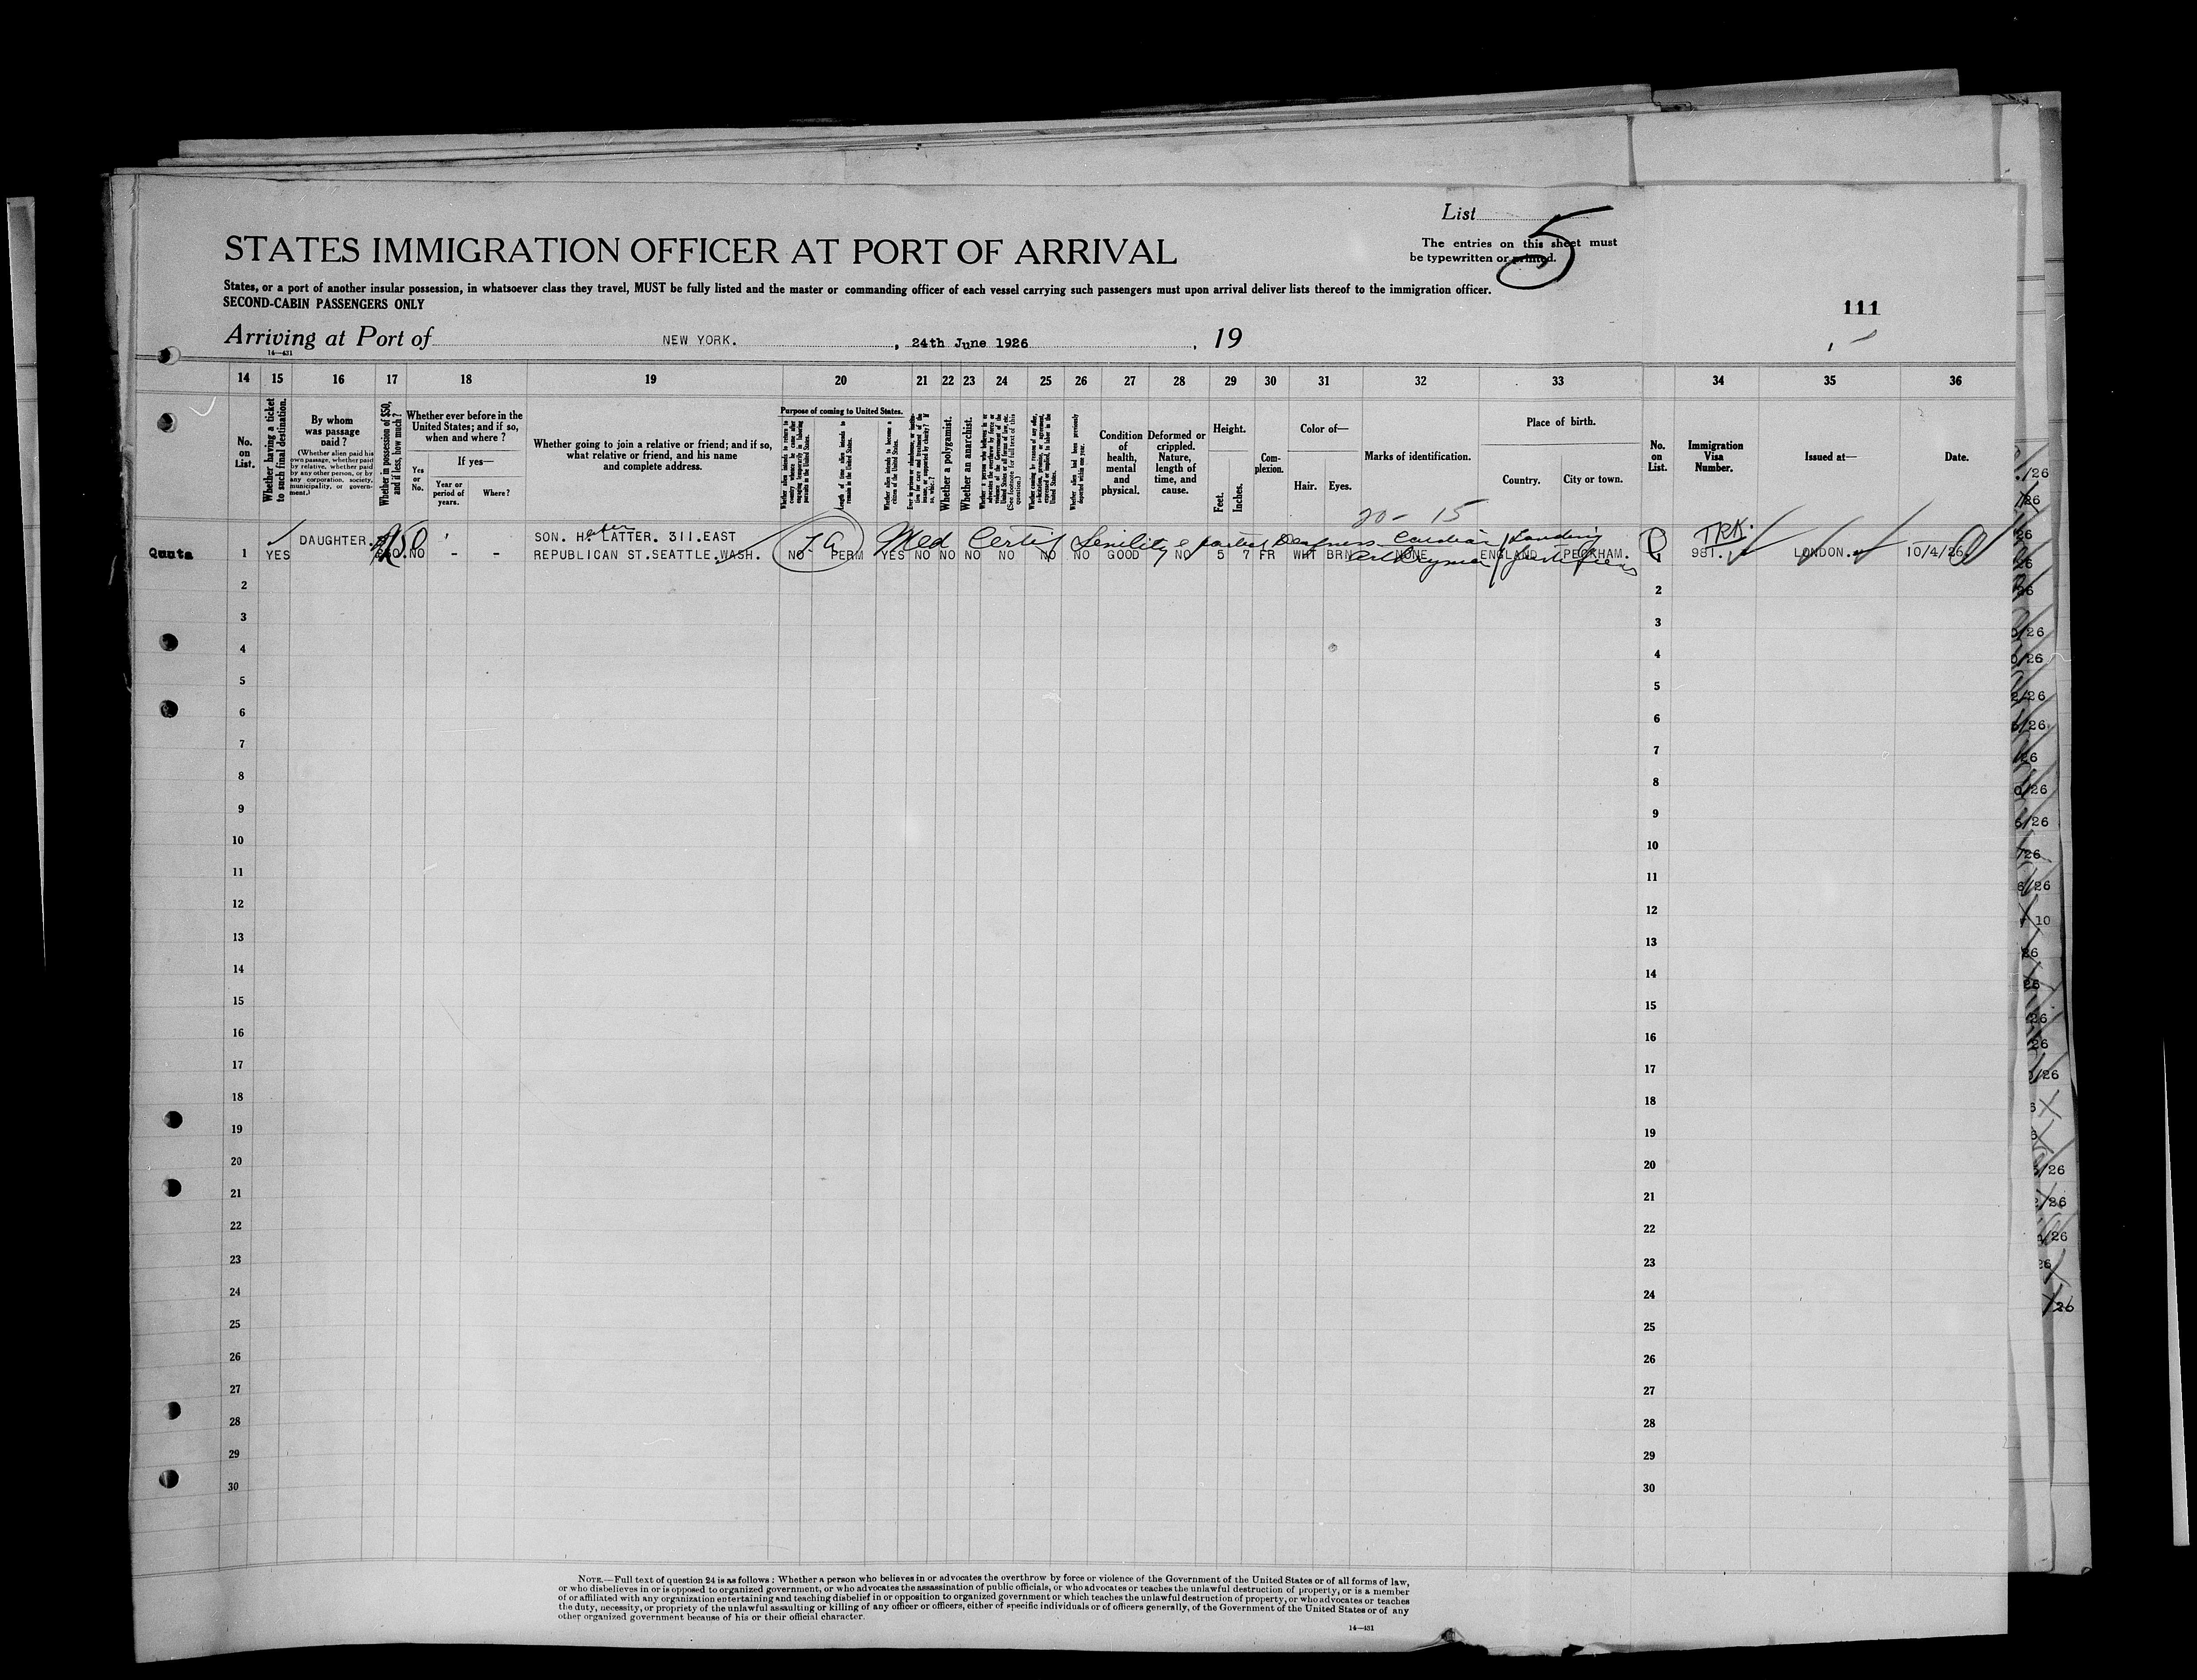 List 5
STATES IMMIGRATION OFFICER AT PORT OF ARRIVAL
The entries on this sheet must
be typewritten or printed.
States, or a port of another insular possession, in whatsoever class they travel, MUST be fully listed and the master or commanding officer of each vessel carrying such passengers must upon arrival deliver lists thereof to the immigration officer.
SECOND-CABIN PASSENGERS ONLY
111
Arriving at Port of NEW YORK. , 24th June 1926 , 19
14—431
14 15 16 17 18 19 20 21 22 23 24 25 26 27 28 29 30 31 32 33 34 35 36
No. on List.
Whether having a ticket to such final destination.
By whom was passage paid?
(Whether alien paid his own passage, whether paid by relative, whether paid by any other person, or by any corporation, society, municipality, or government.)
Whether in possession of $50, and if less, how much?
Whether ever before in the United States; and if so, when and where?
Yes or No.
If yes—
Year or period of years.
Where?
Whether going to join a relative or friend; and if so, what relative or friend, and his name and complete address.
Purpose of coming to United States.
Length of time alien intends to remain in the United States.
Whether alien intends to become a citizen of the United States.
Whether a polygamist.
Whether an anarchist.
Whether alien had been previously deported within one year.
Condition of health, mental and physical.
Deformed or crippled. Nature, length of time, and cause.
Height.
Feet.
Inches.
Complexion.
Color of—
Hair.
Eyes.
Marks of identification.
Place of birth.
Country.
City or town.
No. on List.
Immigration Visa Number.
Issued at—
Date.
20- 15
DAUGHTER. $50 SON. H. LATTER. 311.EAST Med Certif Senility & partial Deafness Cardiac Landing TRK.
Quota 1 YES NO - - REPUBLICAN ST.SEATTLE.WASH. NO PERM YES NO NO NO NO NO NO GOOD NO 5 7 FR WHT BRN NONE ENGLAND PECKHAM. 1 981. LONDON. 10/4/26
2 2
3 3
4 4
5 5
6 6
7 7
8 8
9 9
10 10
11 11
12 12
13 13
14 14
15 15
16 16
17 17
18 18
19 19
20 20
21 21
22 22
23 23
24 24
25 25
26 26
27 27
28 28
29 29
30 30
NOTE.—Full text of question 24 is as follows: Whether a person who believes in or advocates the overthrow by force or violence of the Government of the United States or of all forms of law,
or who disbelieves in or is opposed to organized government, or who advocates the assassination of public officials, or who advocates or teaches the unlawful destruction of property, or is a member
of or affiliated with any organization entertaining and teaching disbelief in or opposition to organized government or which teaches the unlawful destruction of property, or who advocates or teaches
the duty, necessity, or propriety of the unlawful assaulting or killing of any officer or officers, either of specific individuals or of officers generally, of the Government of the United States or of any
other organized government because of his or their official character.
14—431